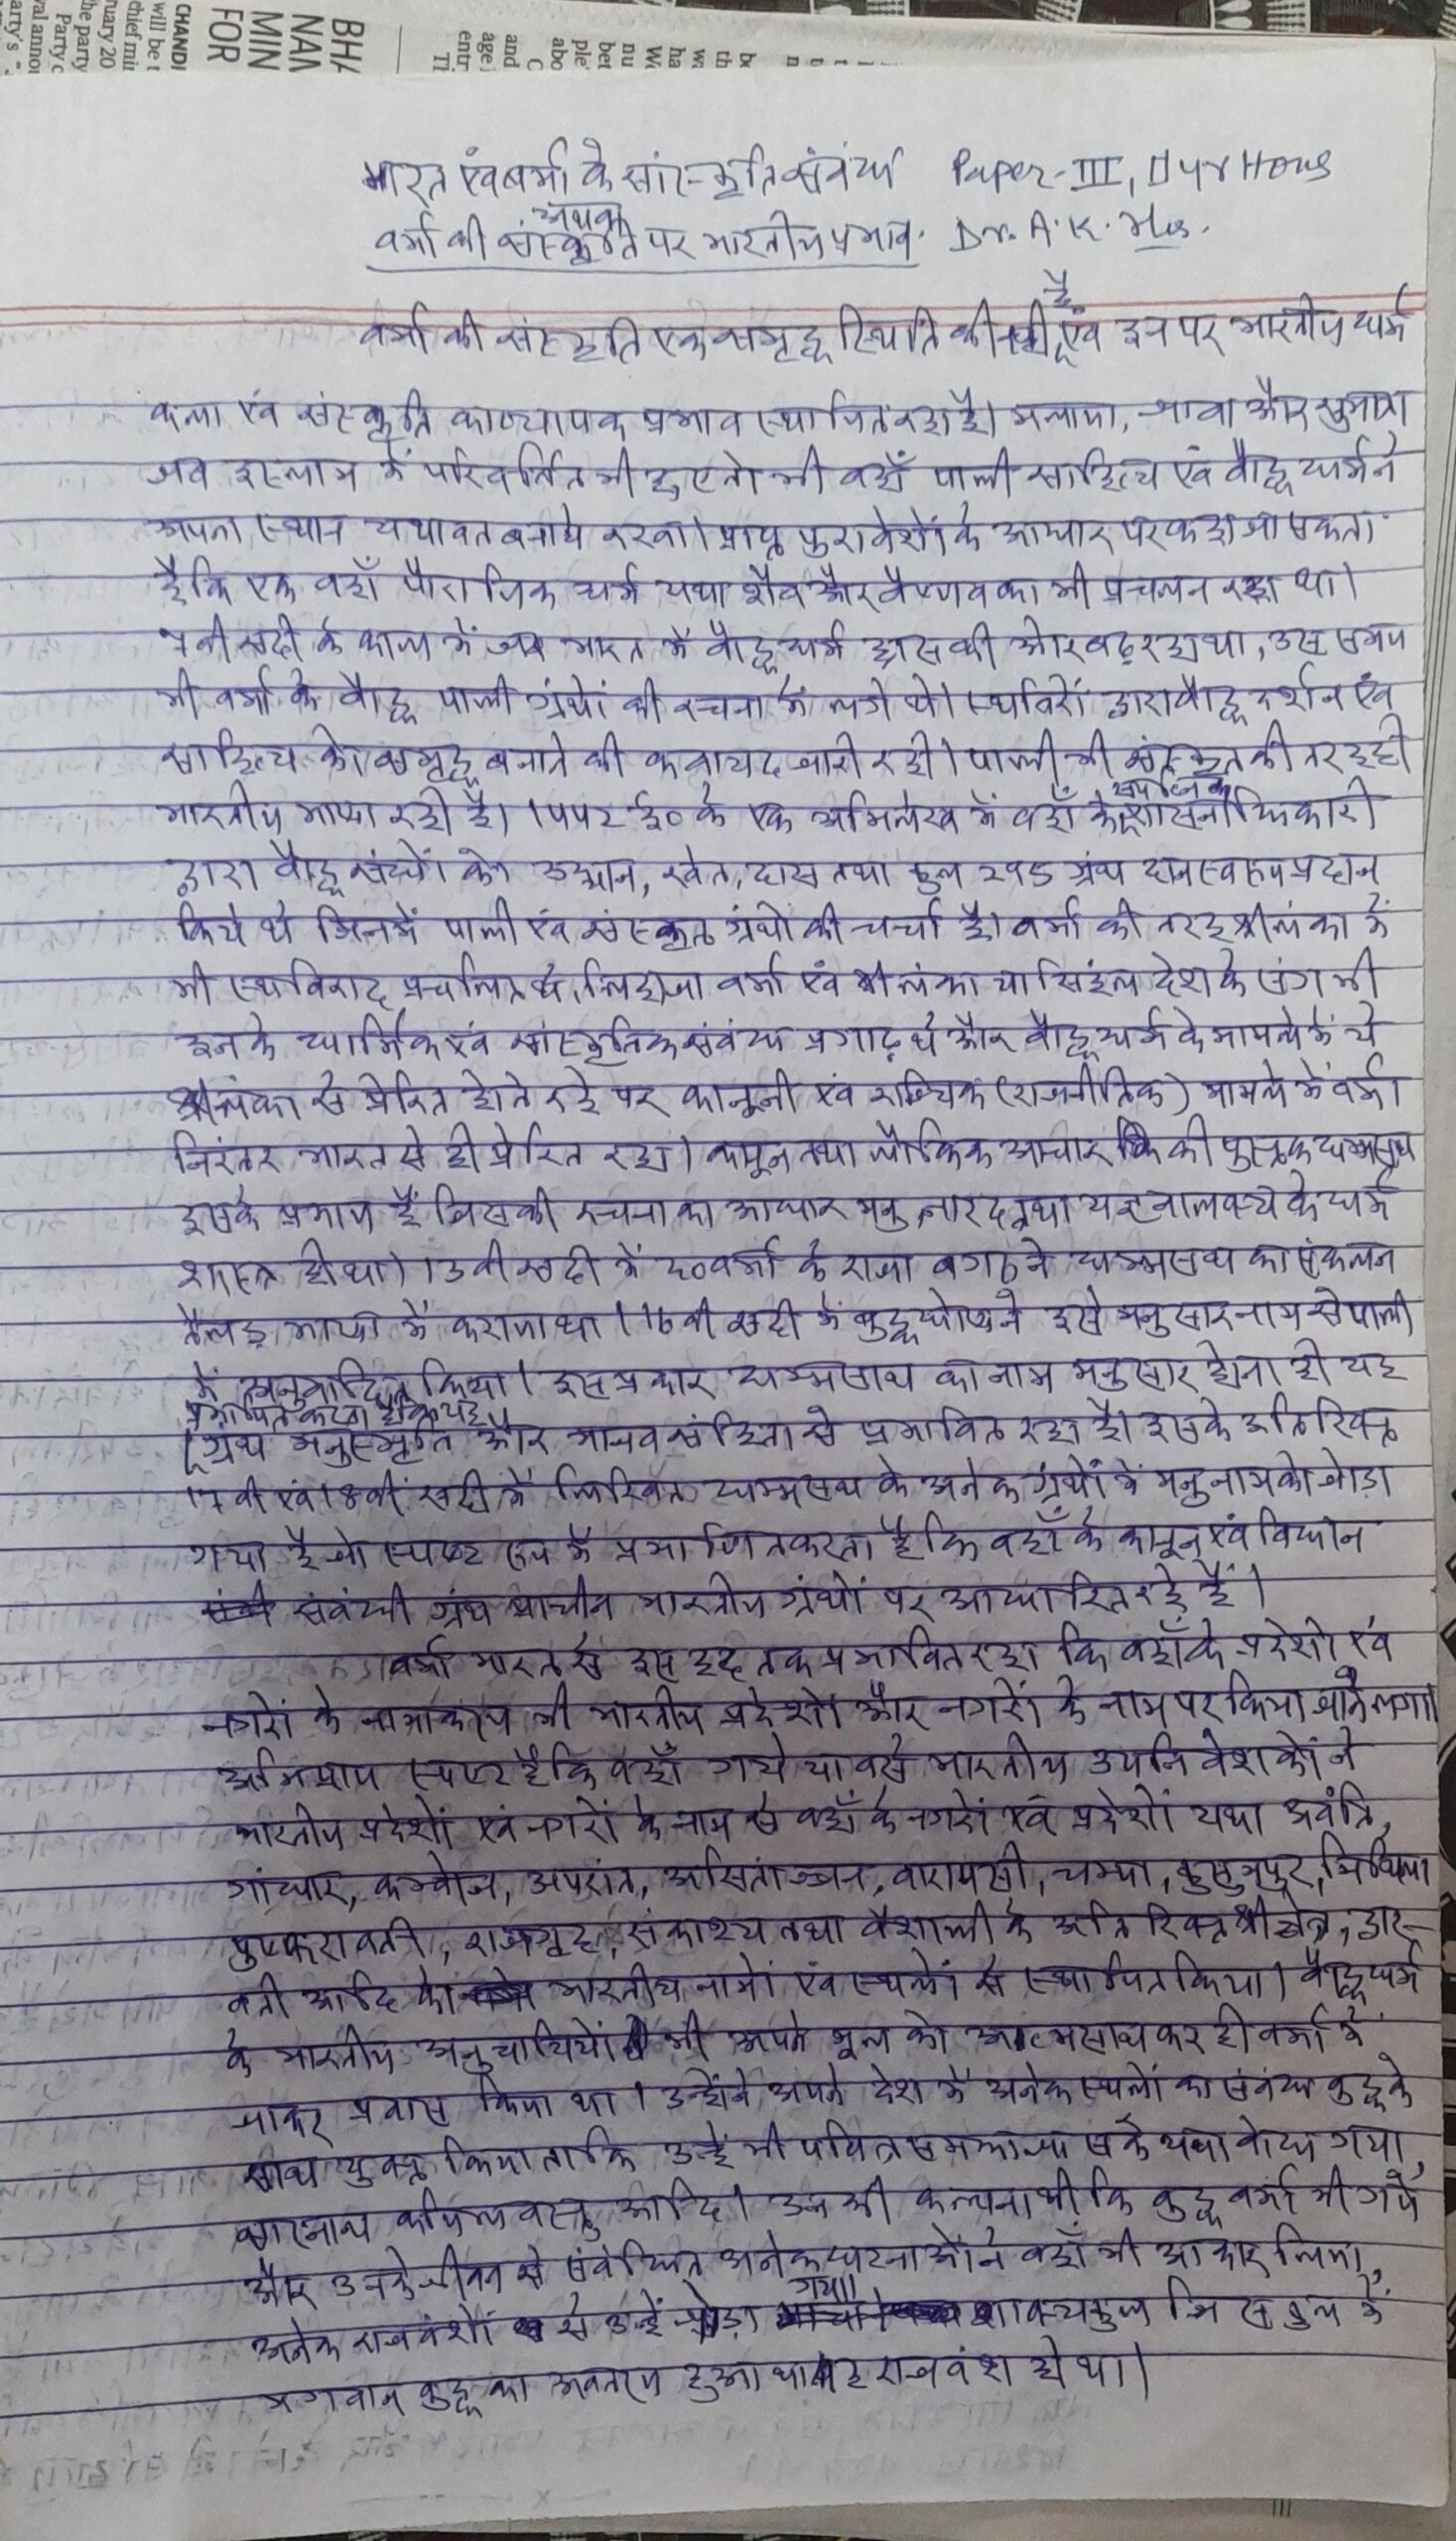 BHA
NAM
MIN
FOR
CHANDI
will be t
chief mi
uary 20
he party
Party c
val annou
arty's
and
age
entr
भारत एवं बर्मा के सांस्कृति संबंध Paper-III,
अथवा
वर्मा की संस्कृति पर भारतीय प्रभाव. Dr. A.K.
वर्मा की संस्कृति एक समृद्ध स्थिति की रही है एवं इन पर भारतीय धर्म
कला एवं संस्कृति का व्यापक प्रभाव स्थापित रहा है। मलाया, जावा और सुमात्रा
जब इस्लाम में परिवर्तित भी हुए तो भी वहाँ पाली साहित्य एवं बौद्ध धर्म ने
अपना स्थान यथावत बनाये रखा। प्राप्त पुरावशेषों के आधार पर कहा जा सकता
है कि एक वहाँ पौराणिक धर्म यथा शैव और वैष्णव का भी प्रचलन रहा था।
वी सदी के काल में जब भारत में बौद्ध धर्म ह्रास की ओर बढ़ रहा था, उस समय
भी वर्मा के बौद्ध पाली ग्रंथों की रचना में लगे थे। स्थविरों द्वारा बौद्ध दर्शन एवं
साहित्य को समृद्ध बनाने की कवायद जारी रही। पाली भी संस्कृत की तरह ही
भारतीय भाषा रही है। 1442 ई० के एक अभिलेख में वहाँ के शासनाधिकारी
द्वारा बौद्ध संघों को उद्यान, खेत, दास तथा कुल 295 ग्रंथ दान स्वरूप प्रदान
किये थे जिनमें पाली एवं संस्कृत ग्रंथों की चर्चा है। वर्मा की तरह श्रीलंका में
भी स्थविराद प्रचलित थे, लिहाजा वर्मा एवं श्रीलंका या सिंहल देश के संग भी
इनके धार्मिक एवं सांस्कृतिक संबंध प्रगाढ़ थे और बौद्ध धर्म के मामले में ये
श्रीलंका से प्रेरित होते रहे पर कानूनी एवं (राजनीतिक) मामले में वर्मा
निरंतर भारत से ही प्रेरित रहा। कानून तथा लौकिक आचार की पुस्तक धम्मसथ
इसके प्रमाण हैं जिसकी रचना का आधार मनु नारद तथा यज्ञवालक्य के धर्म
शास्त्र ही था। 13वी सदी में द० वर्मा के राजा वगरु ने धम्मसथ का संकलन
तैलङ्ग भाषा में कराया था। 16वी सदी में बुद्धघोष ने इसे मनुसार नाम से पाली
में अनुवादित किया। इस प्रकार धम्मसाथ का नाम मनुसार होना ही यह
प्रमाणित करता है कि यह
ग्रंथ मनुस्मृति और मानव संहिता से प्रभावित रहा है। इसके अतिरिक्त
17वी एवं 18वीं सदी में लिखित धम्मसथ के अनेक ग्रंथों में मनु नाम को जोड़ा
गया है जो स्पष्ट रूप में प्रमाणित करता है कि वहाँ के कानून एवं विधान
संबंधी ग्रंथ प्राचीन भारतीय ग्रंथों पर आधारित रहे हैं।
वर्मा भारत से इस हद तक प्रभावित रहा कि वहाँ के प्रदेशों एवं
नगरों के नामाकरण भी भारतीय प्रदेशों और नगरों के नाम पर किया जाने लगा।
अभिप्राय स्पष्ट है कि वहाँ गये या बसे भारतीय उपनिवेशकों ने
भारतीय प्रदेशों एवं नगरों के नाम से वहाँ के नगरों एवं प्रदेशों यथा अवंति,
गांधार, कम्बोज, अपरांत, असितांज्जन, वाराणसी, चम्पा, कुसुमपुर, मिथिला
पुष्करावती, राजगृह, संकाश्य तथा वैशाली के अतिरिक्त श्रीक्षेत्र, द्वार-
वती आदि को भारतीय नामों एवं स्थलों से स्थापित किया। बौद्ध धर्म
के भारतीय अनुयायियों ने भी अपने मूल को आत्मसाथ कर ही वर्मा में
जाकर प्रवास किया था। उन्होंने अपने देश में अनेक स्थलों का संबंध बुद्ध के
साथ युक्त किया ताकि उन्हें भी पवित्र समझा जा सके यथा बोध गया,
सारनाथ कपिलवस्तु आदि। उनकी कल्पना थी कि बुद्ध वर्मा भी गये
और उनके जीवन से संबंधित अनेक घटनाओं ने वहाँ भी आकार लिया,
अनेक राजवंशों से उन्हें जोड़ा गया। शाक्यकुल जिस कुल में
भगवान बुद्ध का अवतरण हुआ था वह राजवंश ही था।